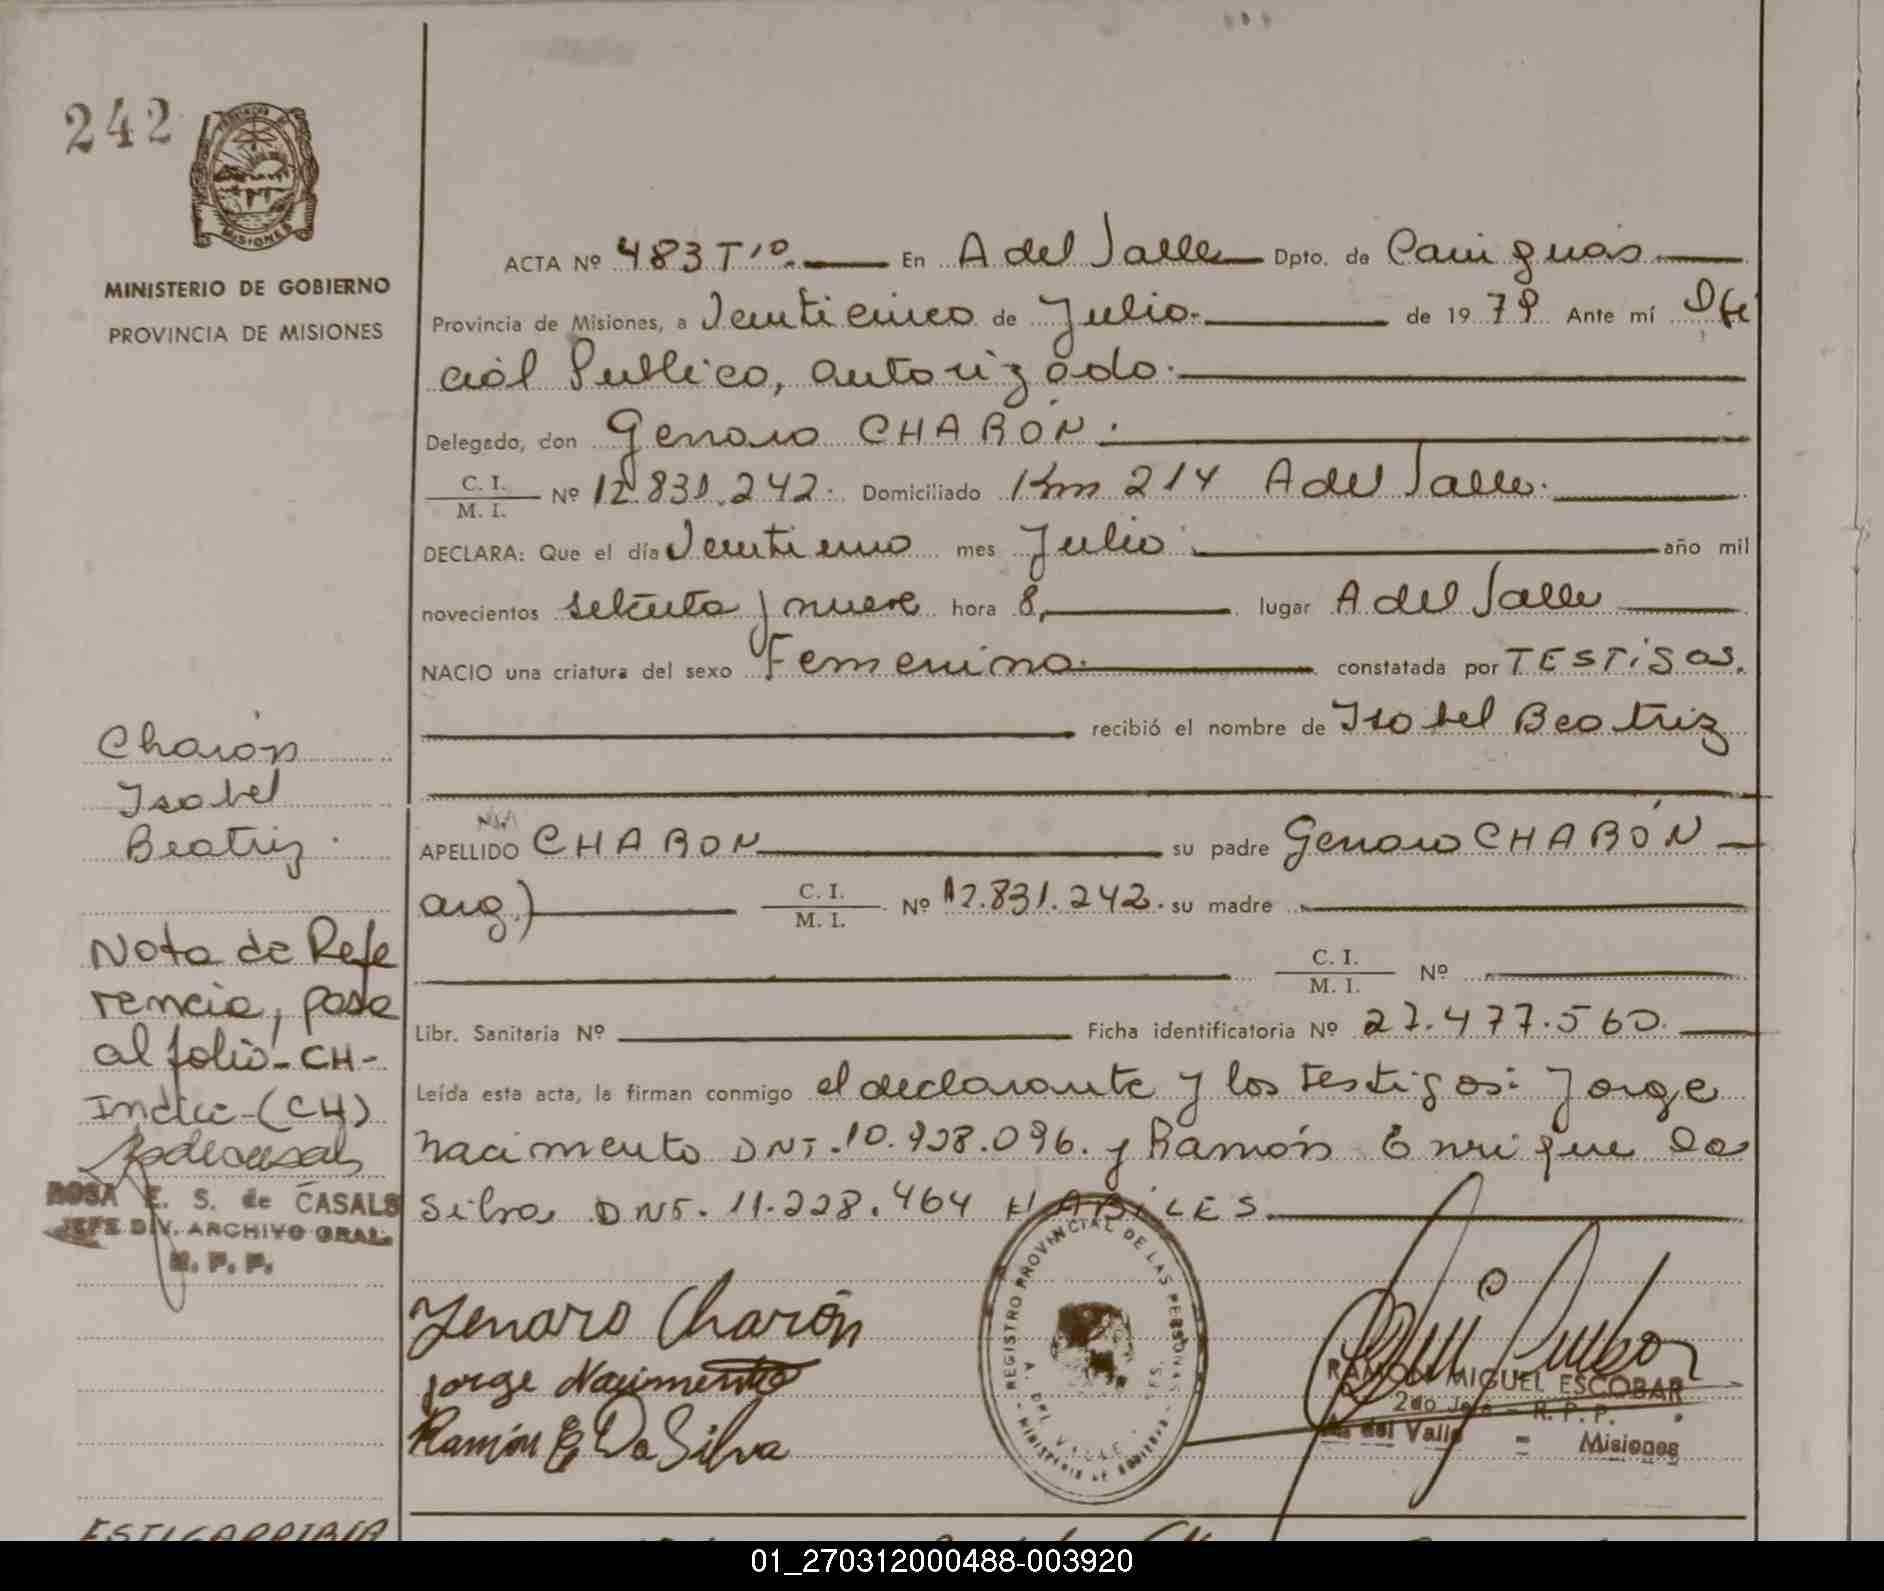 242
PROVINCIA DE
MISIONES
MINISTERIO DE GOBIERNO
PROVINCIA DE MISIONES
ACTA Nº 483 Tº En A del Valle Dpto. de Cainguás
Provincia de Misiones, a Venticinco de Julio de 1979 Ante mí Ofi
cial Publico, autorizado.
Delegado, don Genaro CHARÓN.
C. I.
M. I. Nº 12.831.242. Domiciliado Km 214 A del Valle.
DECLARA: Que el día Ventiuno mes Julio año mil
novecientos setenta y nueve hora 8, lugar A del Valle
NACIO una criatura del sexo Femenino constatada por TESTiGOS.
recibió el nombre de Isabel Beatriz
APELLIDO CHARON su padre Genaro CHARÓN
arg.) C. I.
M. I. Nº 12.831.242. su madre
C. I.
M. I. Nº
Libr. Sanitaria Nº Ficha identificatoria Nº 27.477.560.
Leída esta acta, la firman conmigo el declarante y los testigos: Jorge
Nacimento DNI. 10.928.096. y Ramón Enrique Da
Silva DNI. 11.228.464 HABiLES.
Charón
Isabel
Beatriz.
Nota de Refe
rencia, pasa
al folio-CH-
Indice-(CH)
ROSA E. S. de CASALS
JEFE DIV. ARCHIVO GRAL.
R. P. P.
Jenaro Charón
Jorge Nacimento
Ramón E Da Silva
REGISTRO PROVINCIAL DE LAS PERSONAS
A. DEL VALLE
MINISTERIO DE GOBIERNO
RAMON MIGUEL ESCOBAR
2do Jefe - R. P. P.
A. del Valle - Misiones
01_270312000488-003920